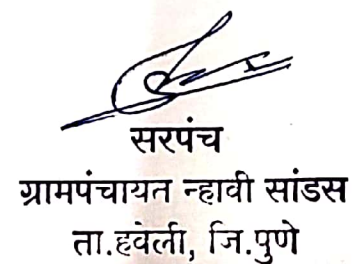 सरपंच
ग्रामपंचायत न्हावी सांडस
ता.हवेली, जि.पुणे